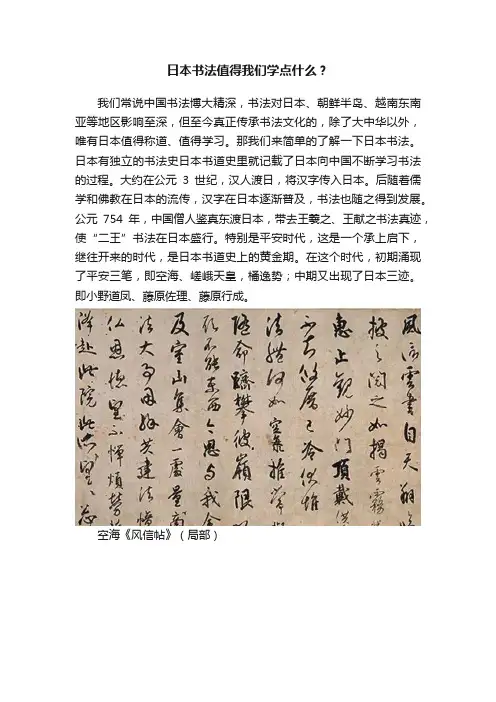 日本书法值得我们学点什么？
我们常说中国书法博大精深，书法对日本、朝鲜半岛、越南东南
亚等地区影响至深，但至今真正传承书法文化的，除了大中华以外，
唯有日本值得称道、值得学习。那我们来简单的了解一下日本书法。
日本有独立的书法史日本书道史里就记载了日本向中国不断学习书法
的过程。大约在公元 3 世纪，汉人渡日，将汉字传入日本。后随着儒
学和佛教在日本的流传，汉字在日本逐渐普及，书法也随之得到发展。
公元 754 年，中国僧人鉴真东渡日本，带去王羲之、王献之书法真迹，
使“二王”书法在日本盛行。特别是平安时代，这是一个承上启下，
继往开来的时代，是日本书道史上的黄金期。在这个时代，初期涌现
了平安三笔，即空海、嵯峨天皇，桶逸势；中期又出现了日本三迹。
即小野道凤、藤原佐理、藤原行成。
風信雲書自天翔臨
披之閱之如揭雲霧
惠止觀妙門頂戴供
不知攸厝已冷伏惟
法體何如空海推常
隨命躋攀彼嶺限
願不能東西今思与我金
及室山集會一處量商
法大事因緣共建法幢
仏恩德望不憚煩勞
降赴此院此所望々忩
空海《风信帖》（局部）